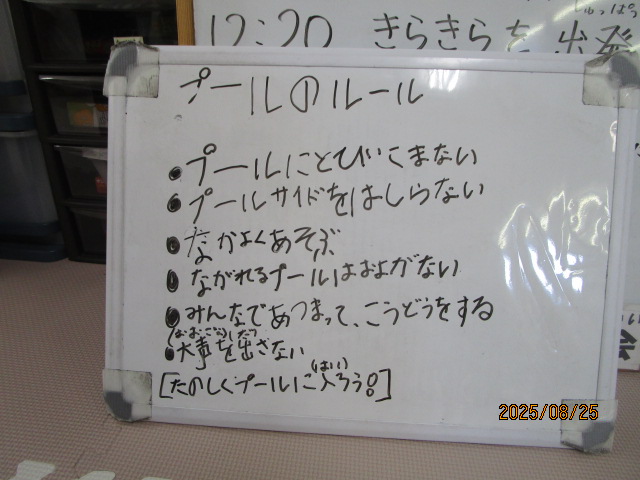 12:20 きらきらを出発
プールのルール
・プールにとびこまない
・プールサイドをはしらない
・なかよくあそぶ
・ながれるプールはおよがない
・みんなであつまって、こうどうをする
・大事を出さない
[たのしくプールに入(はい)ろう!]
2025/08/25